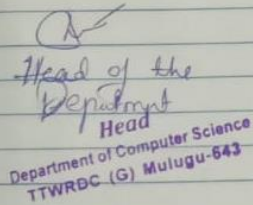 Head of the
Department
Head
Department of Computer Science
TTWRDC (G) Mulugu-643